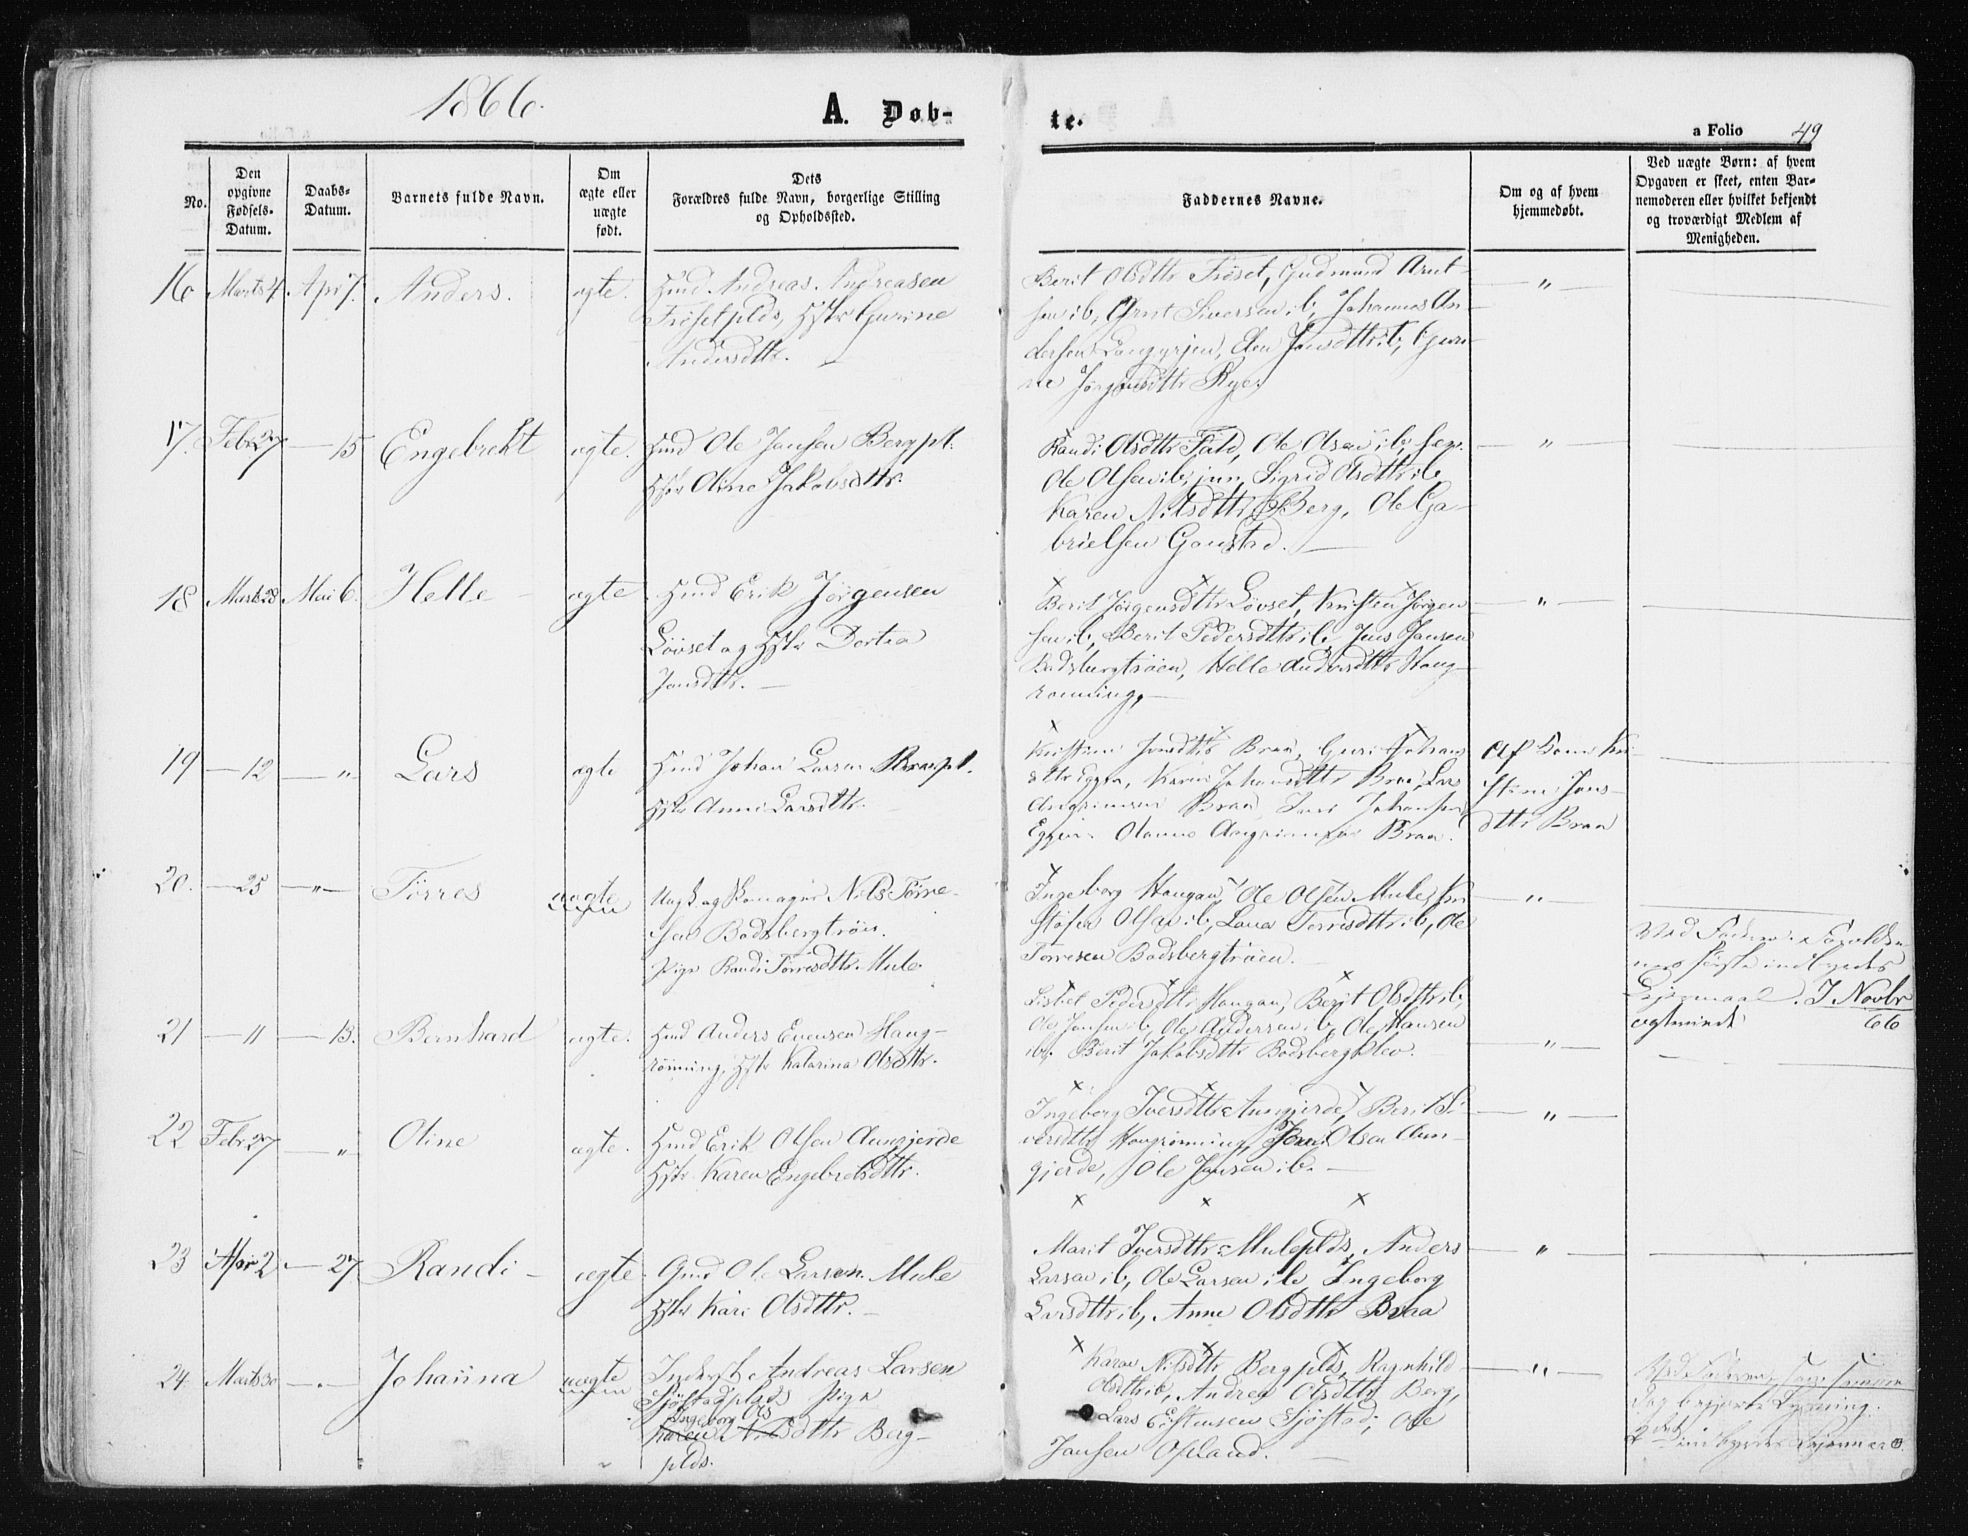 1866.
A. Døb-
te.
a Folio 49
No.
Den
opgivne
Fødsels-
Datum.
Daabs-
Datum.
Barnets fulde Navn.
Om
ægte eller
uægte
født.
Dets
Forældres fulde Navn, borgerlige Stilling
og Opholdssted.
Faddernes Navne.
Om og af hvem
hjemmedøbt.
Ved uægte Børn: af hvem
Opgaven er skeet, enten Bar-
nemoderen eller hvilket bekjendt
og troværdigt Medlem af
Menigheden.
16 Marts 4 Apr 7. Anders. ægte.
Hmd Andreas Andreasen
Frösetplds, Hstr Gurine
Andersdtr.
Berit Olsdtr Fröset, Gudmund Arnt-
sen ib, Arnt Sivertsen ib, Johannes An-
dersen Langørjen, Elen Jonsdtr ib, Guri-
ne Jørgensdtr Rye.
17. Febr 27 — 15 Engebrekt ægte.
Hmd Ole Jansen Bergpl.
Hstr Oline Jakobsdtr.
Randi Olsdtr Fald, Ole Olsen ib, sen.
Ole Olsen ib, jun, Sigrid Olsdtr ib
Karen Nilsdtr Berg, Ole Ga-
brielsen Gaustad. —
18 Marts 28 Mai 6. Helle — ægte
Hmd Erik Jörgensen
Lövset og Hstr Dortea
Jonsdtr. —
Berit Jörgensdtr Lövset, Kristen Jörgen
sen ib, Berit Pedersdtr ib, Jens Jansen
Badsbergtröen, Helle Andersdtr Haug-
rönning, —
19 — 12 — " Lars ægte
Hmd Johan Larsen Braapl.
Hstr Anne Larsdtr.
Kristine Jonsdtr Braa, Guri Johans
dtr Eggen, Karen Johansdtr Braa, Lars
Angrimsen Braa, Lars Johansen
Eggen. Olaune Angrimsen Braa.
Af Kone Kri-
stine Jons-
dtr Braa
20. — 25 — " — Törres uægte
Ungk og Skomager Nils Törre-
sen Badsbergtröen.
Pige Randi Törresdtr Mule
Ingeborg Haugan, Ole Olsen Mule, Kri
stofer Olsen ib, Lava Torresdtr ib, Ole
Torresen Badsbergtröen.
Ved Faderen. Forældre-
nes første indbyrdes
Leiermaal. I Novbr
ægteviede 66
21 — 11 — 13. Bernhard ægte.
Hmd Anders Evensen Haug-
rönning, Hstr Katarina Olsdtr.
Lisbet Pedersdtr Haugan, Berit Olsdtr ib,
Ole Jonsen ib, Ole Andersen ib, Ole Hansen
ib. Berit Jakobsdtr Badsbergklev.
22 Febr 27 — " Oline ægte.
Hmd Erik Olsen Aungjerde
Hstr Karen Engebretsdtr.
Ingeborg Iversdtr Aungjerde, Berit Si-
versdtr Haugrönning, Jens Olsen Aun-
gjerde, Ole Jansen ib. —
23 Apr 2 — 27 Randi — ægte
Gmd Ole Larsen Mule
Hstr Kari Olsdtr. —
Marit Iversdtr Muleplds, Anders
Larsen ib, Ole Larsen ib, Ingeborg
Larsdtr ib, Anne Olsdtr Braa
24. Marts 30 — " — Johanna uægte
Inderst Andreas Larsen
Sjöstadplds Pige
Ingeborg Ols
Karen Nilsdtr Berg-
plds.
Karen Nilsdtr Bergplds, Ragnhild
Olsdtr ib, Andrea Olsdtr Berg,
Lars Estensen Sjöstad, Ole
Jansen Opland. —
Ved Faderen,
Dag begjærte Lysning.
2det indbyrdes Leiermaal